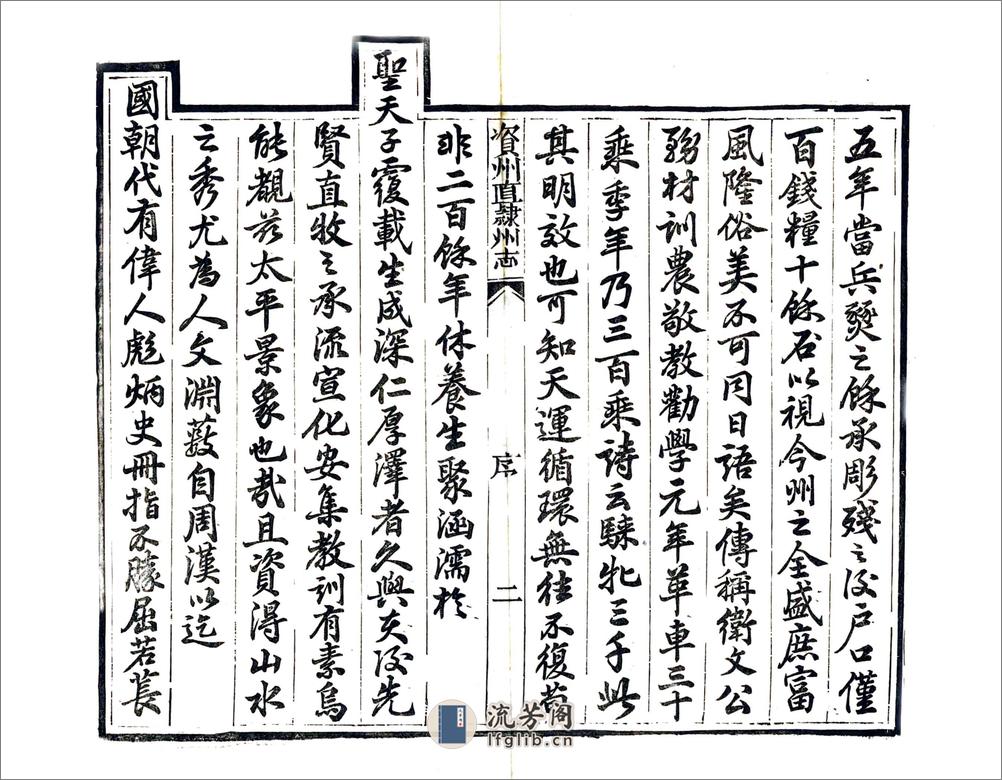 五年當兵燹之餘承彫殘之後戶口僅
百錢糧十餘石以視今州之全盛庶富
風隆俗美不可同日語矣傳稱衛文公
務材訓農敬教勸學元年革車三十
乘季年乃三百乘詩云騋牝三千此
其明效也可知天運循環無往不復苟
資州直隸州志
序
二
非二百餘年休養生聚涵濡於
聖天子覆載生成深仁厚澤者久與夫後先
賢直牧之承流宣化安集教訓有素烏
能覩茲太平景象也哉且資得山水
之秀尤為人文淵藪自周漢以迄
國朝代有偉人彪炳史冊指不勝屈若萇
流芳阁
lfglib.cn